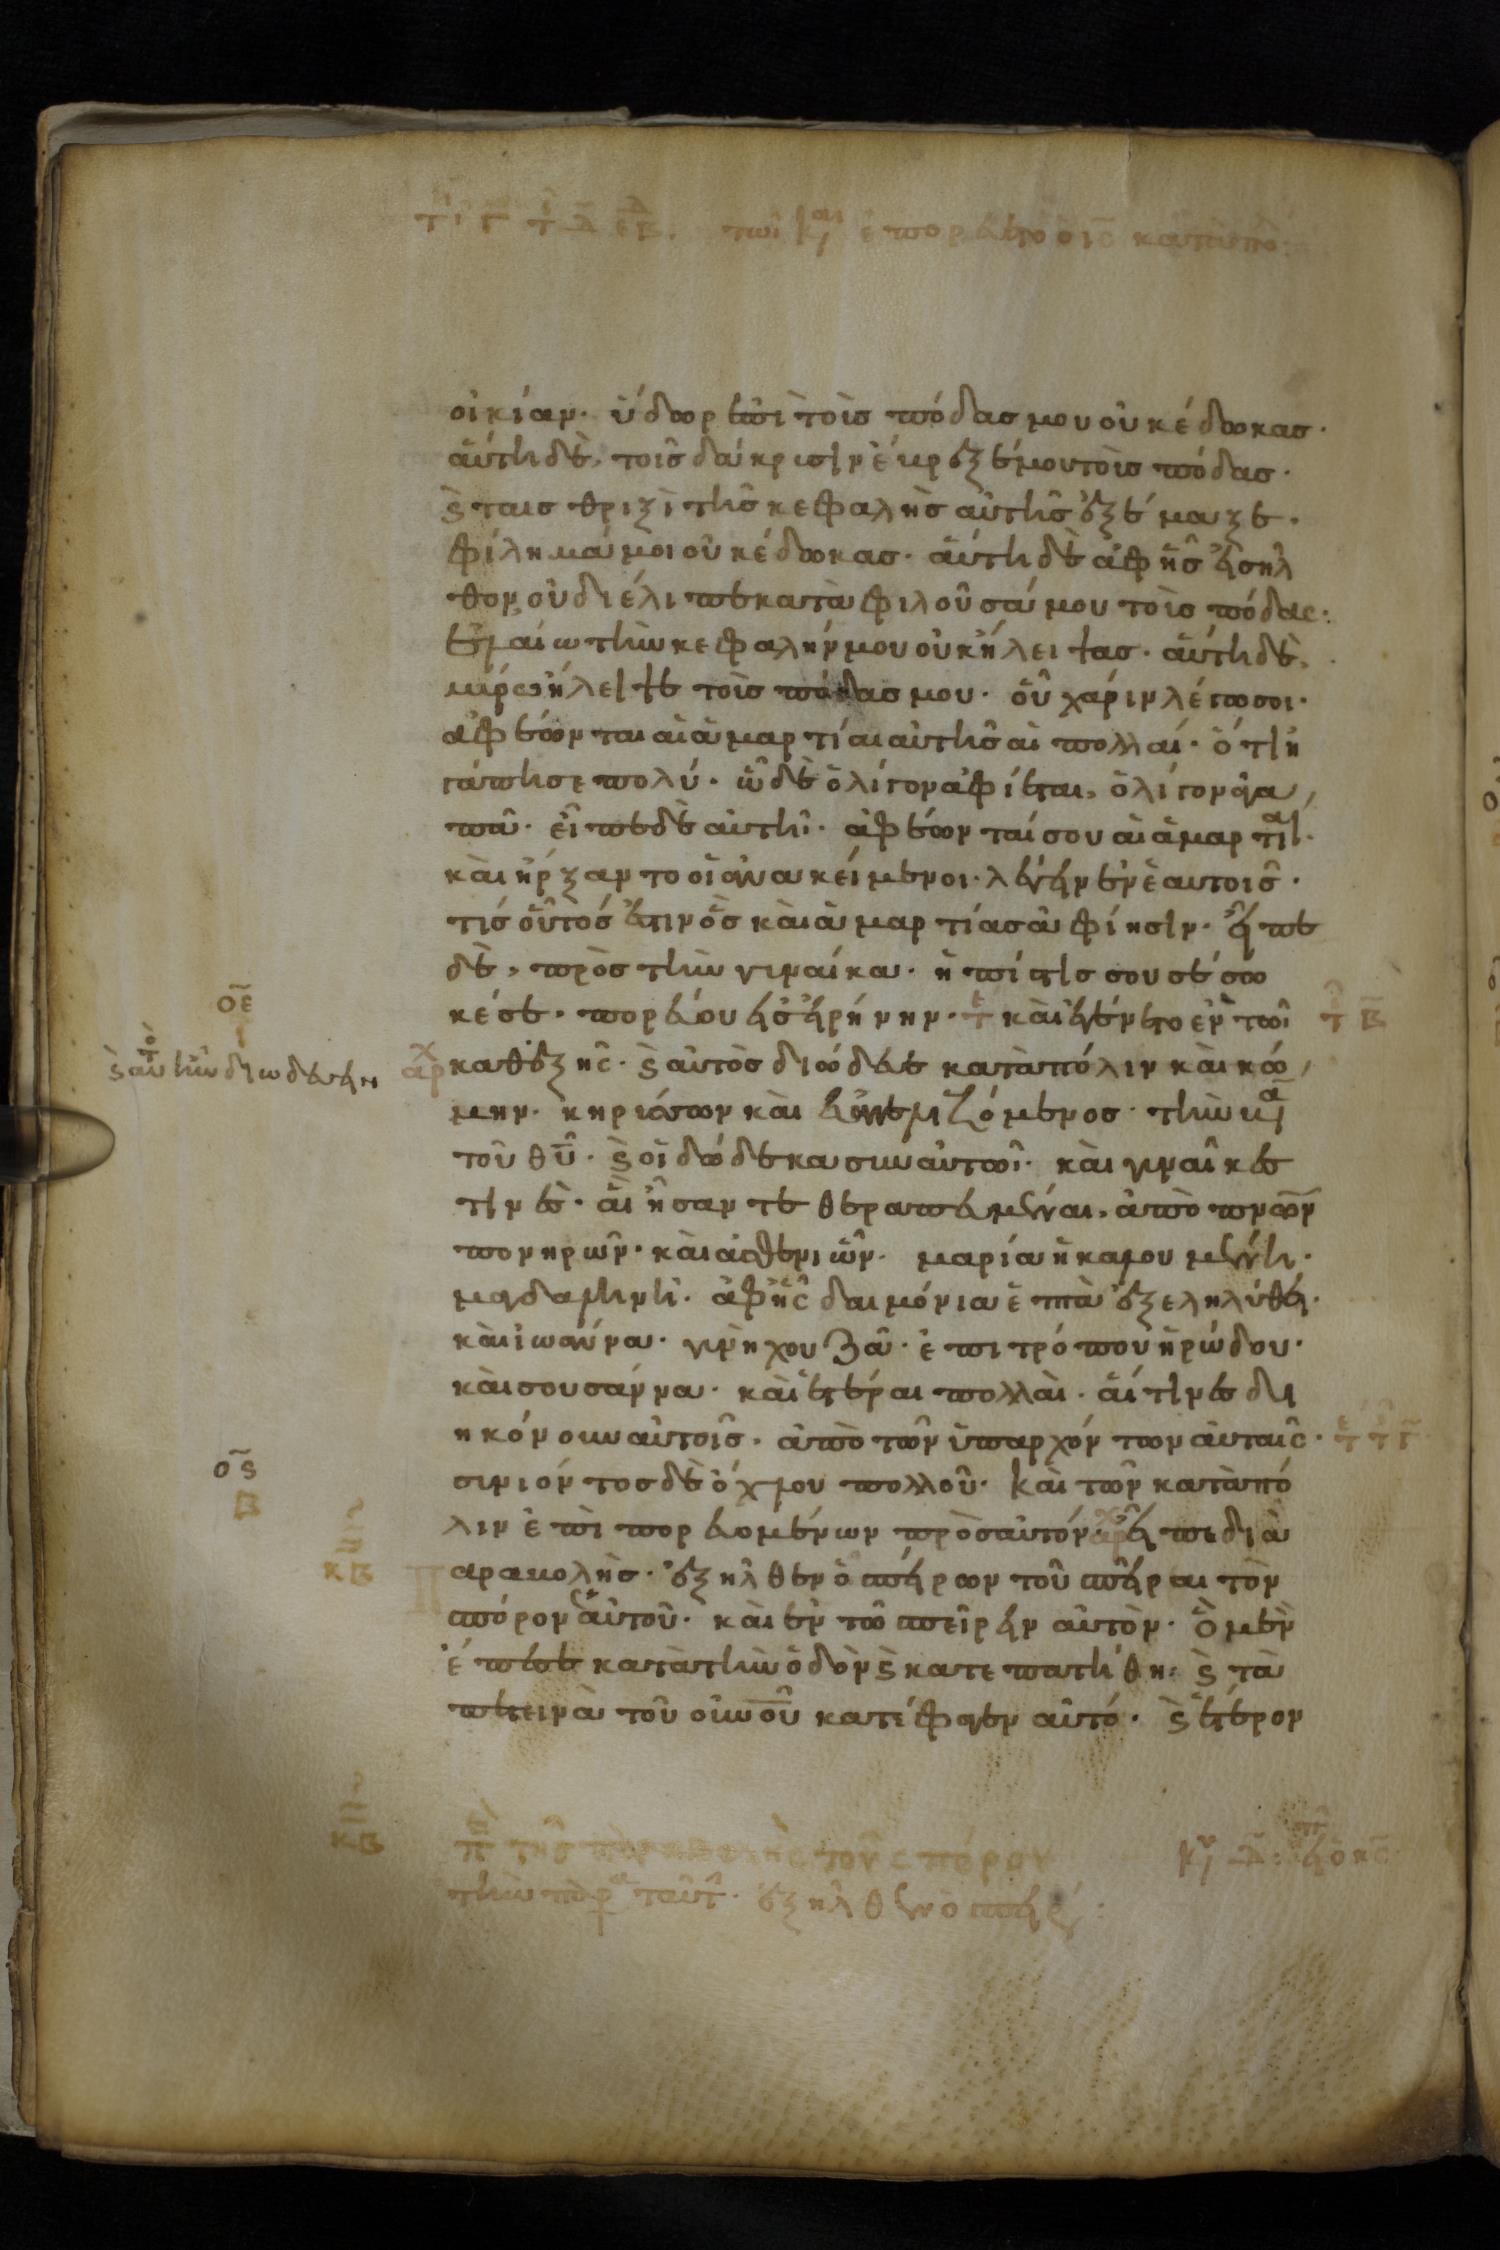 οἰκίαν· ὕδωρ ἐπὶ τοὺς πόδας μου οὐκ ἔδωκας·
αὕτη δὲ, τοῖς δάκρυσιν ἔβρεξέ μου τοὺς πόδας·
ϗ ταις θριξὶ τῆς κεφαλῆς αὐτῆς ἐξέμαξε·
φίλημά μοι οὐκ ἔδωκας· αὕτη δὲ ἀφ ἧς εἰσῆλ
θον, οὐ διέλιπε καταφιλοῦσά μου τοὺς πόδας·
ἐλαίω τὴν κεφαλήν μου οὐκ ἤλειψας· αὕτη δὲ,
μύρω ἤλειψε τοὺς πόδας μου· οὗ χάριν λέγω σοι·
ἀφέωνται αἱ ἁμαρτίαι αὐτῆς αἱ πολλαί· ὅτι ἠ
γάπησε πολύ· ὧ δὲ ὀλίγον ἀφίεται, ὀλίγον ἀγα
πᾶ· εἶπε δὲ αὐτῆ· ἀφέωνταί σου αἱ ἁμαρτίαι·
καὶ ἤρξαντο οἱ ἀνακείμενοι· λέγειν ἐν ἑαυτοῖς·
τίς οὗτός ἐστιν ὃς καὶ ἁμαρτίας ἀφίησιν· εἶπε
δὲ, πρὸς τὴν γυναίκα· ἡ πίστις σου σέσω
κέ σε· πορεύου εἰς εἰρήνην· καὶ ἐγένετο ἐν τῶι
καθεξῆς· ϗ αὐτὸς διώδευε κατὰ πόλιν καὶ κώ
μην· κηρύσσων καὶ εὐαγγελιζόμενος· τὴν βα
τοῦ θυ· ϗ οἱ δώδεκα σὺν αὐτῶι· καὶ γυναῖκες
τινὲς· αἳ ἦσαν τεθεραπευμέναι, ἀπὸ πνων
πονηρῶν· καὶ ἀσθενιῶν· μαρία ἡ καλουμένη·
μαγδαληνὴ· ἀφ ἧς δαιμόνια ἑπτὰ ἐξεληλύθει·
καὶ ἰωάννα· γυνὴ χουζᾶ· ἐπιτρόπου ἡρώδου·
καὶ σουσάννα· καὶ ἕτεραι πολλαὶ· αἵτινες δι
ηκόνουν αὐτοῖς· ἀπὸ τῶν ὑπαρχόντων αὐταῖς·
συνιόντος δὲ ὄχλου πολλοῦ· καὶ τῶν κατὰ πό
λιν ἐπιπορευομένων πρὸς αὐτόν· εἶπε διὰ
παραβολῆς· ἐξῆλθεν ὁ σπείρων τοῦ σπεῖραι τὸν
σπόρον αὐτοῦ· καὶ ἐν τῶ σπεῖρειν αὐτὸν· ὃ μὲν
ἔπεσε κατὰ τὴν ὁδὸν ϗ κατεπατήθη· ϗ τὰ
πετεινὰ τοῦ οὐνοῦ κατέφαγεν αὐτό· ϗ ἕτερον
οε
ος
β
κβ
κβ